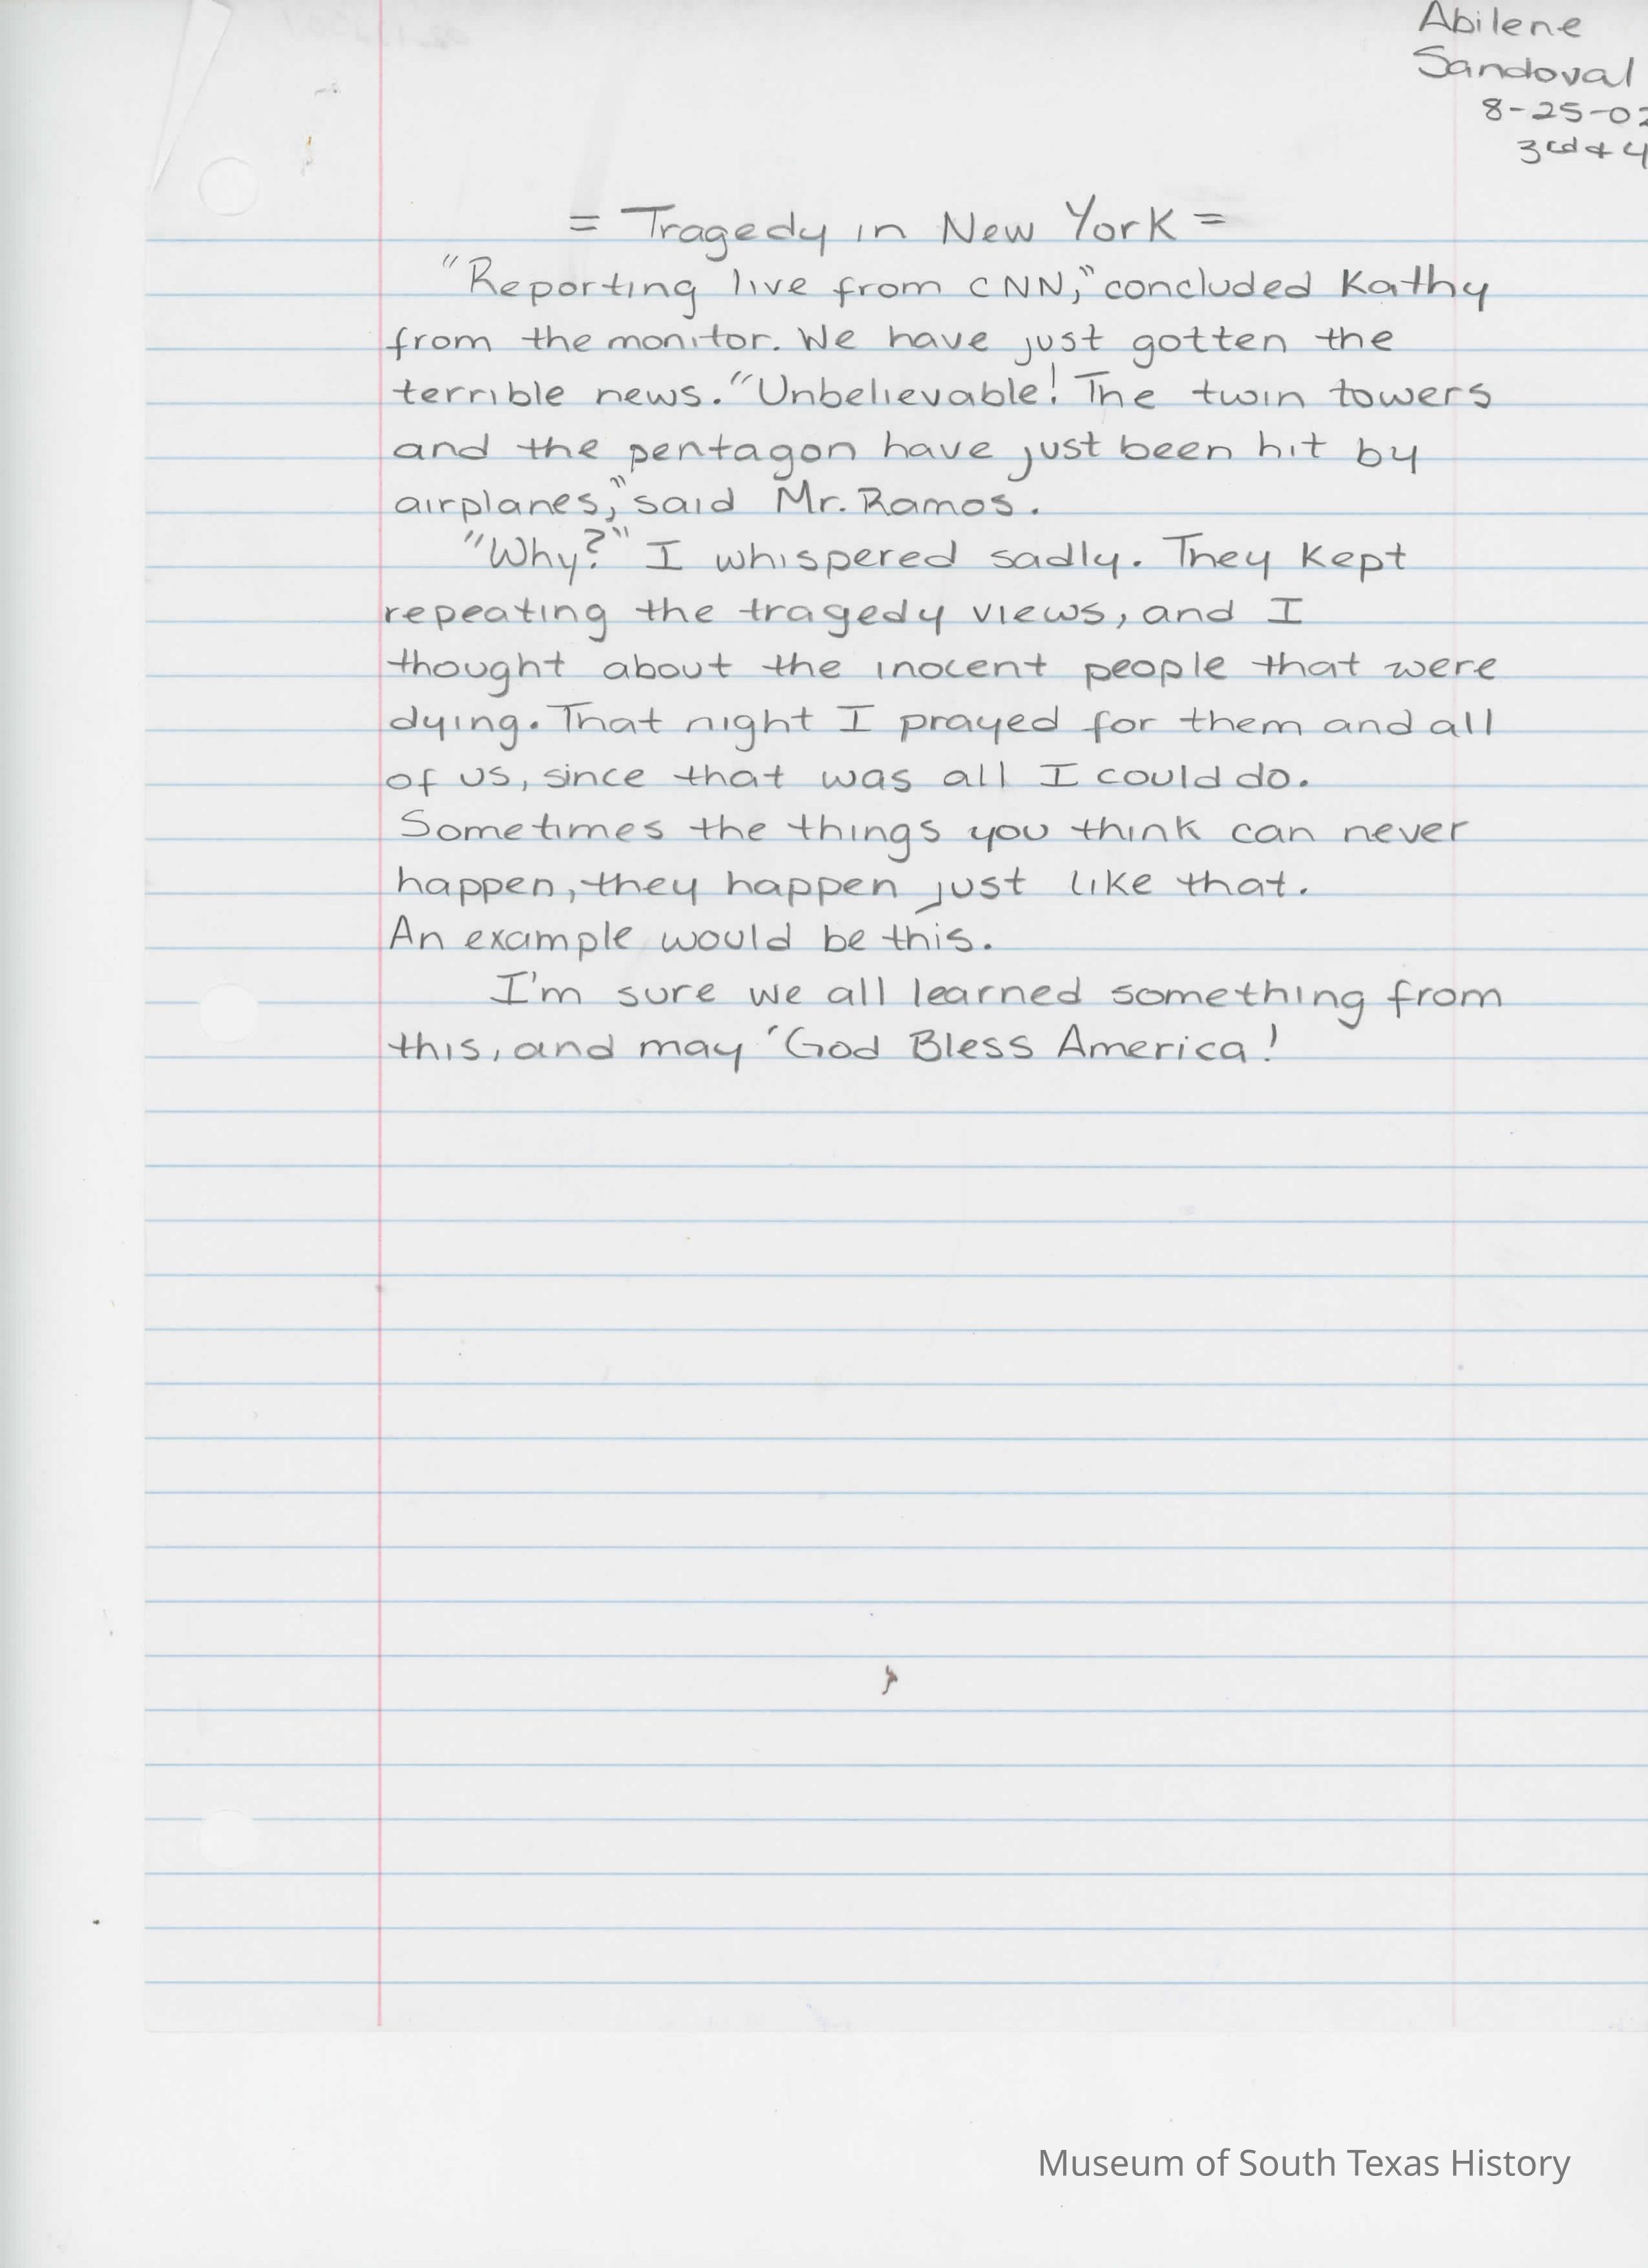 Abilene
Sandoval
8-25-02
3rd & 4
= Tragedy in New York =
"Reporting live from CNN," concluded Kathy
from the monitor. We have just gotten the
terrible news. "Unbelievable! The twin towers
and the pentagon have just been hit by
airplanes," said Mr. Ramos.
"Why?" I whispered sadly. They kept
repeating the tragedy views, and I
thought about the inocent people that were
dying. That night I prayed for them and all
of us, since that was all I could do.
Sometimes the things you think can never
happen, they happen just like that.
An example would be this.
I'm sure we all learned something from
this, and may 'God Bless America!
Museum of South Texas History